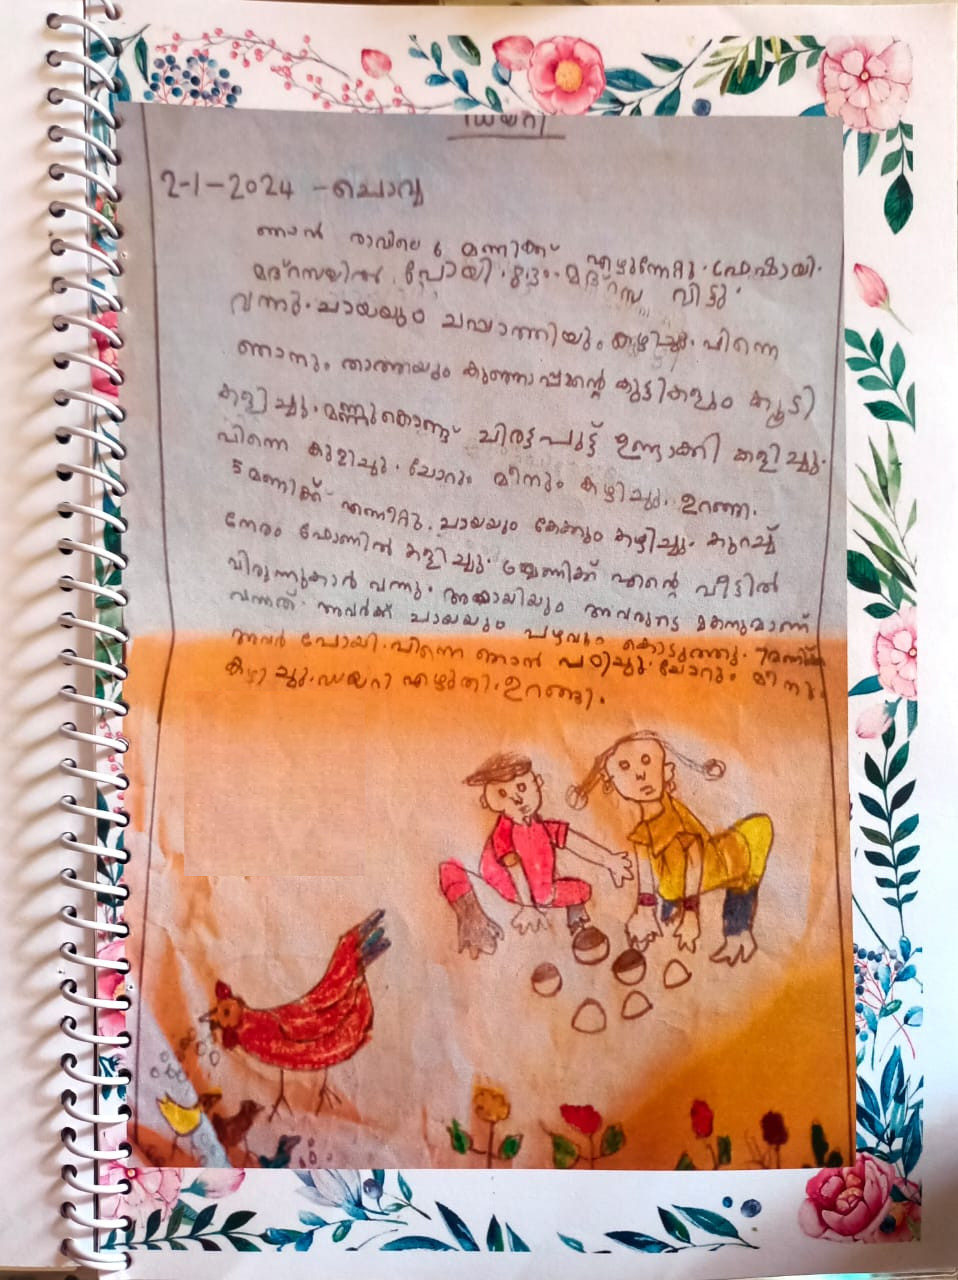 ഡയറി
2-1-2024 - ചൊവ്വ
ഞാൻ രാവിലെ 6 മണിക്ക് എഴുന്നേറ്റു. ഫ്രഷായി.
മദ്റസയിൽ പോയി. 8:30 മദ്റസ വിട്ടു.
വന്നു. ചായയും ചപ്പാത്തിയും കഴിച്ചു. പിന്നെ
ഞാനും താത്തയും കുഞ്ഞാപ്പന്റെ കുട്ടികളും കൂടി
കളിച്ചു. മണ്ണുകൊണ്ടു് ചിരട്ടപുട്ട് ഉണ്ടാക്കി കളിച്ചു.
പിന്നെ കുളിച്ചു. ചോറും മീനും കഴിച്ചു. ഉറങ്ങി.
5 മണിക്ക് എണീറ്റു. ചായയും കേക്കും കഴിച്ചു. കുറച്ച്
നേരം ഫോണിൽ കളിച്ചു. മണിക്ക് എന്റെ വീട്ടിൽ
വിരുന്നുകാർ വന്നു. അമ്മായിയും അവരുടെ മകനുമാണ്
വന്നത്. അവർക്ക് ചായയും പഴവും കൊടുത്തു. 7 മണിക്ക്
അവർ പോയി. പിന്നെ ഞാൻ പഠിച്ചു. ചോറും മീനും
കഴിച്ചു. ഡയറി എഴുതി. ഉറങ്ങി.